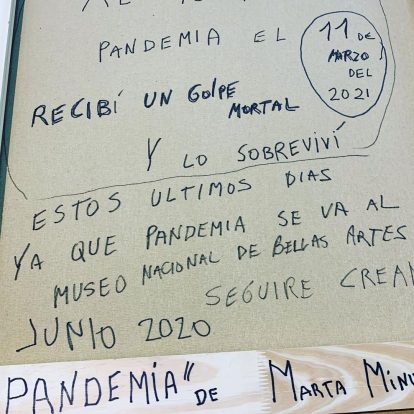 PANDEMIA EL 11 DE
MARZO
DEL
2021
RECIBÍ UN GOLPE
MORTAL
Y LO SOBREVIVÍ
ESTOS ULTIMOS DIAS
YA QUE PANDEMIA SE VA AL
MUSEO NACIONAL DE BELLAS ARTES
SEGUIRE CREAN
JUNIO 2020
PANDEMIA" DE MARTA MINU